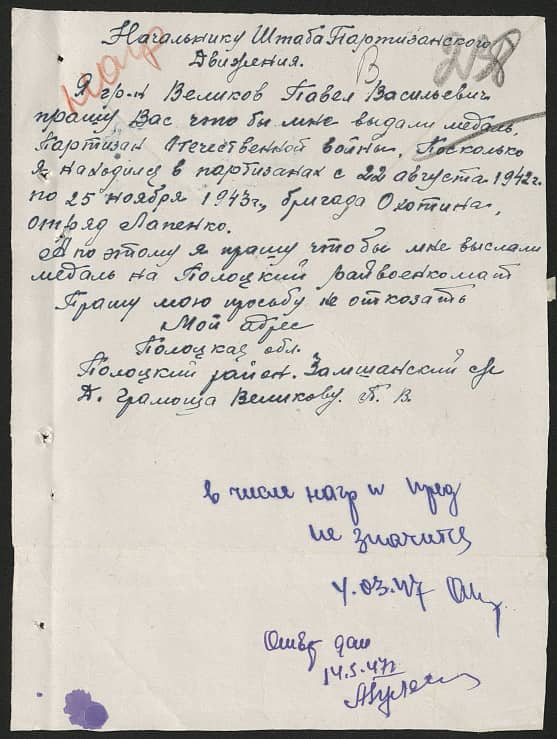 Начальнику Штаба Партизанского
Движения.
В
238
Я гр-н Великов Павел Васильевич
прашу Вас что бы мне выдали медаль,
Партизан Отечественной войны. Посколько
я находился в партизанах с 22 августа 1942г.
по 25 ноября 1943г., бригада Охотина,
отряд Лапенко.
А поэтому я прашу чтобы мне выслали
медаль на Полоцкий райвоенкомат
Прашу мою просьбу не отказать
Мой адрес
Полоцкая обл.
Полоцкий район. Замшанский с/с
Д. Грамоща Великову. П. В.
в числе нагр и пред
не значится
4.03.47
Ответ дан
14.5.47г